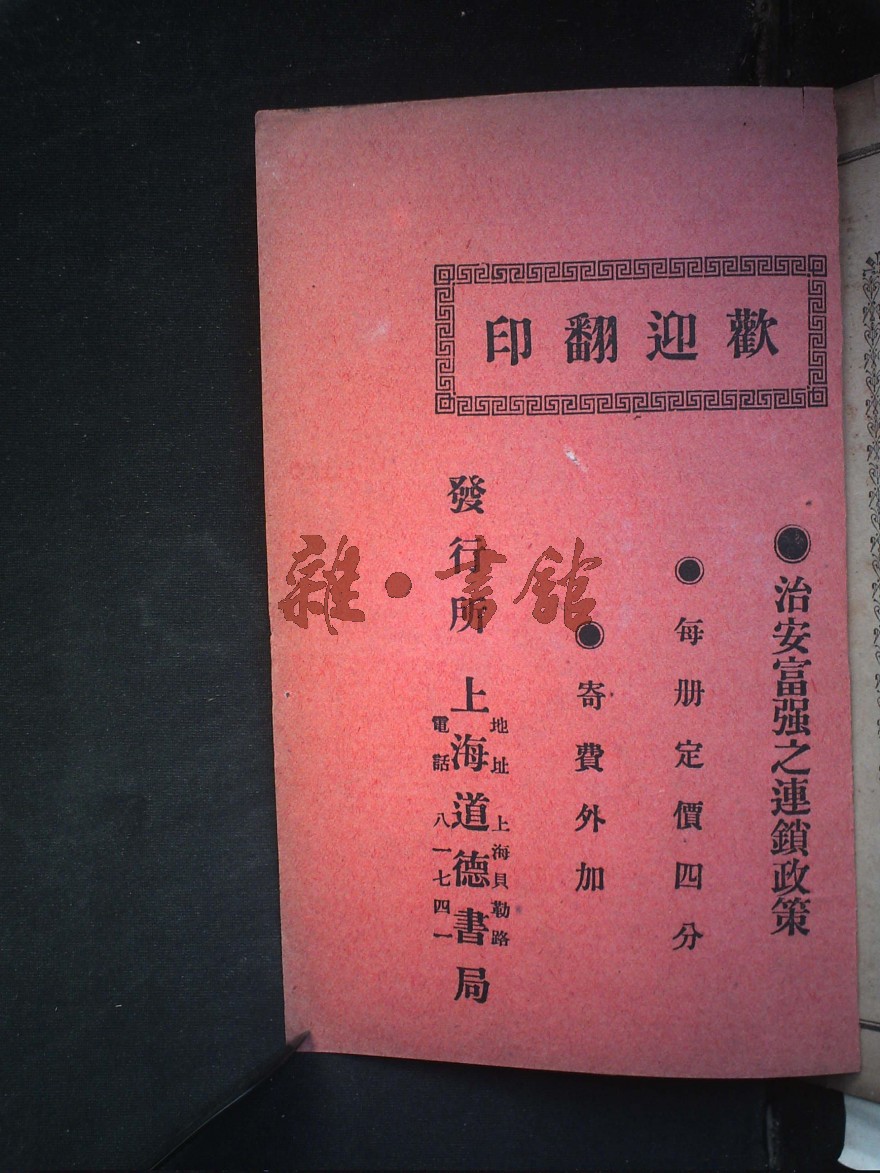 歡迎翻印
治安富强之連鎖政策
每册定價四分
寄費外加
發行所 上海道德書局
地址 上海貝勒路
電話 八一七四一
雜·書舘